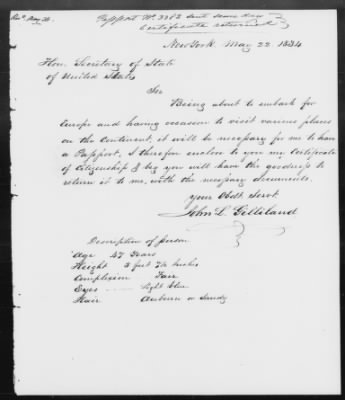 Rec'd May 24.
Passport No. 3382 sent same day
Certificate returned
New York May 22 1834
Hon. Secretary of State
of United States
Sir
Being about to embark for
Europe and having occasion to visit various places
on the Continent it will be necessary for me to have
a Passport. I therefore enclose to you my Certificate
of Citizenship & beg you will have the goodness to
return it to me, with the necessary documents.
your Obdt. Servt.
John L. Gilliland
Description of person
Age 47 Years
Height 5 feet 7½ inches
Complexion Fair
Eyes light blue
Hair Auburn or Sandy